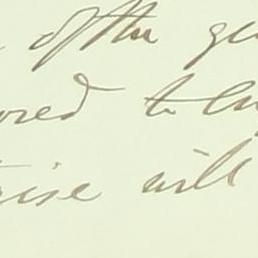 of the ge
ored to
rise will